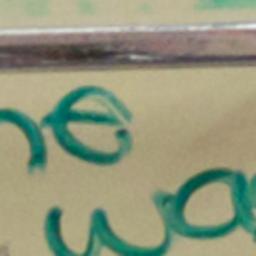 ne
wa